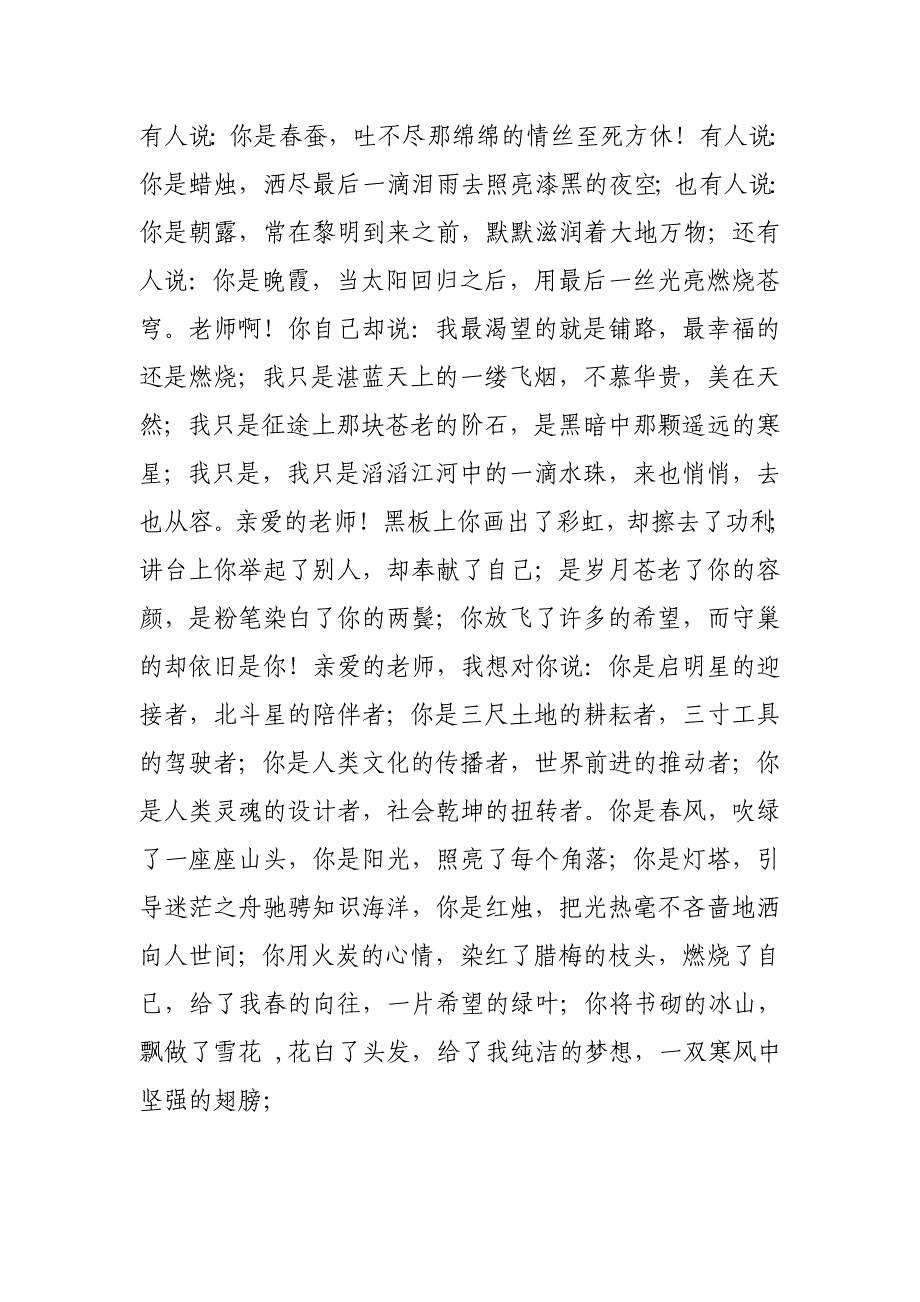 有人说：你是春蚕，吐不尽那绵绵的情丝至死方休！有人说：
你是蜡烛，洒尽最后一滴泪雨去照亮漆黑的夜空；也有人说：
你是朝露，常在黎明到来之前，默默滋润着大地万物；还有
人说：你是晚霞，当太阳回归之后，用最后一丝光亮燃烧苍
穹。老师啊！你自己却说：我最渴望的就是铺路，最幸福的
还是燃烧；我只是湛蓝天上的一缕飞烟，不慕华贵，美在天
然；我只是征途上那块苍老的阶石，是黑暗中那颗遥远的寒
星；我只是，我只是滔滔江河中的一滴水珠，来也悄悄，去
也从容。亲爱的老师！黑板上你画出了彩虹，却擦去了功利；
讲台上你举起了别人，却奉献了自己；是岁月苍老了你的容
颜，是粉笔染白了你的两鬓；你放飞了许多的希望，而守巢
的却依旧是你！亲爱的老师，我想对你说：你是启明星的迎
接者，北斗星的陪伴者；你是三尺土地的耕耘者，三寸工具
的驾驶者；你是人类文化的传播者，世界前进的推动者；你
是人类灵魂的设计者，社会乾坤的扭转者。你是春风，吹绿
了一座座山头，你是阳光，照亮了每个角落；你是灯塔，引
导迷茫之舟驰骋知识海洋，你是红烛，把光热毫不吝啬地洒
向人世间；你用火炭的心情，染红了腊梅的枝头，燃烧了自
已，给了我春的向往，一片希望的绿叶；你将书砌的冰山，
飘做了雪花 ,花白了头发，给了我纯洁的梦想，一双寒风中
坚强的翅膀；